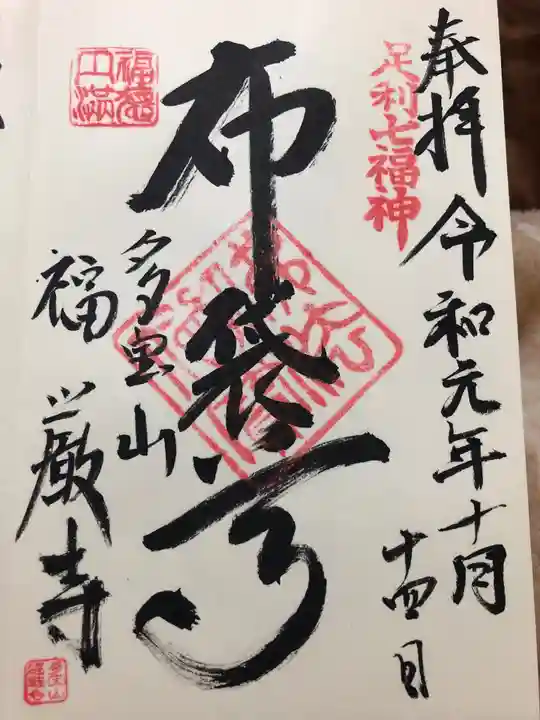 奉拝 令和元年十月
十四日
足利七福神
布袋尊
多宝山
福厳寺
福徳
円満